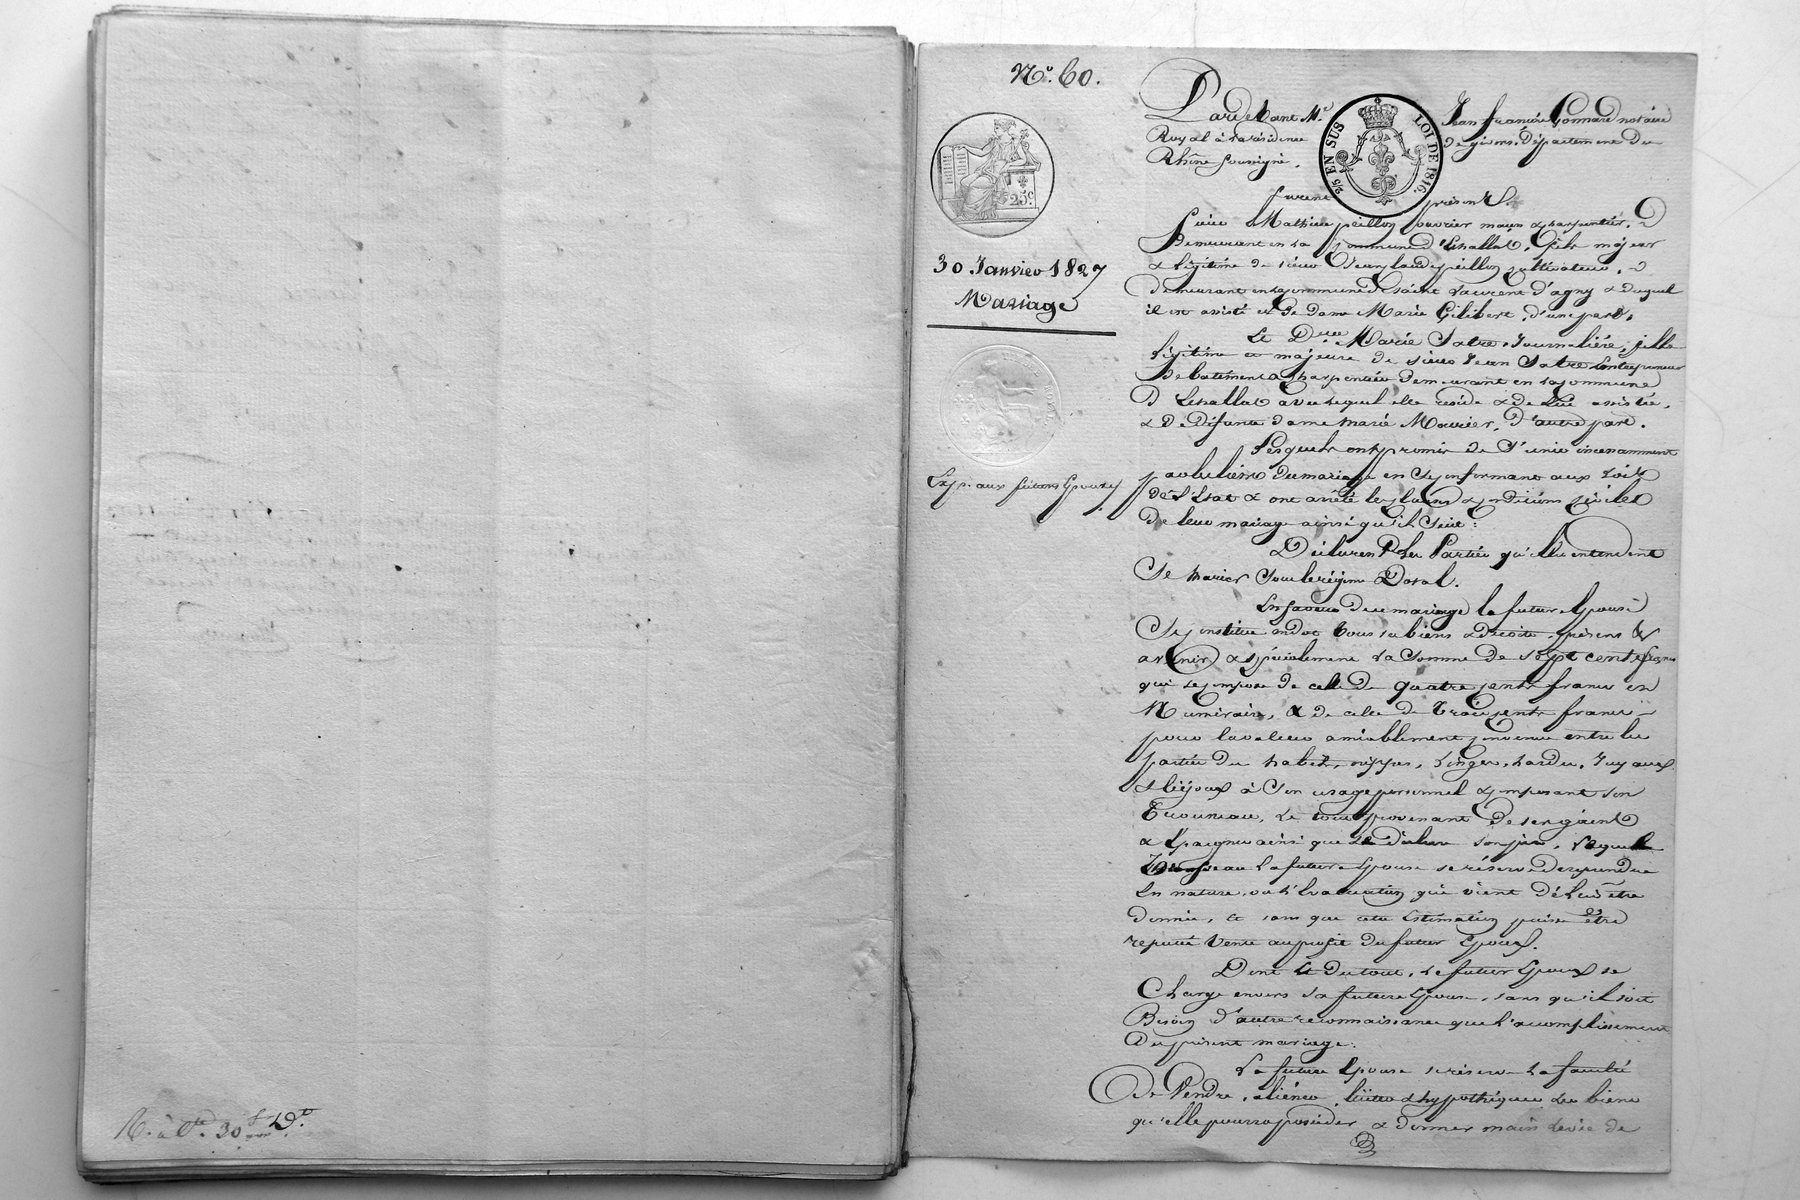 R. à Vte. 30
No. 60.
25c
30 Janvier 1827
Mariage
Exp. aux futurs Epoux
2/5 EN SUS LOI DE 1816.
Pardevant Me. Jean françois Gonnard notaire
Royal à la résidence de givors, Département du
Rhône Soussigné,
furent présents.
Sieur Mathieu peillon ouvrier maçon & charpentier,
Demeurant en la commune d'Echallat, fils majeur
& légitime de sieur Jean Claude peillon cultivateur,
Demeurant en la commune de saint Laurent d'agny & duquel
il est assisté et de dame Marie Gilibert, d'une part,
Et Dlle. Marie Satre, Journalière, fille
légitime et majeure de sieur Jean Satre Entrepreneur
de batiments & charpentier demeurant en la commune
D'Echallat avec lequel elle réside & de lui assistée,
& de défunte dame Marie Mourier, d'autre part.
Lesquels ont promis de s'unir incessamment
par les liens du mariage en se conformant aux lois
de l'Etat & ont arrêté les clauses & conditions civiles
de leur mariage ainsi qu'il suit:
Déclarent les Parties qu'elles entendent
Se marier Sous le régime Dotal.
En faveur de ce mariage la future Epouse
Se constitue en dot tous ses biens & droits présens &
avenir & spécialement la Somme de sept cents francs
qui se compose de celle de quatre cents francs en
Numéraire, & de celle de trois cents francs
pour la valeur amiablement convenue entre les
parties des habits, nippes, linges, hardes, Joyaux
& bijoux à Son usage personnel & composant son
Trousseau, Le tout provenant de ses gains
& Epargnes ainsi que le déclare son père, lequel
Trousseau la future Epouse se réserve de reprendre
En nature, ou l'Evaluation qui vient d'y être
donnée, et sans que cette Estimation puisse être
reputée Vente au profit du futur Epoux.
Dont Et du tout, le futur Epoux se
Charge envers la future Epouse, sans qu'il soit
Besoin d'autre reconnaissance que l'accomplissement
Du présent mariage.
La future Epouse se réserve la faculté
De Vendre, aliéner, & hypothéquer les biens
qu'elle pourra posséder, & donner main levée de